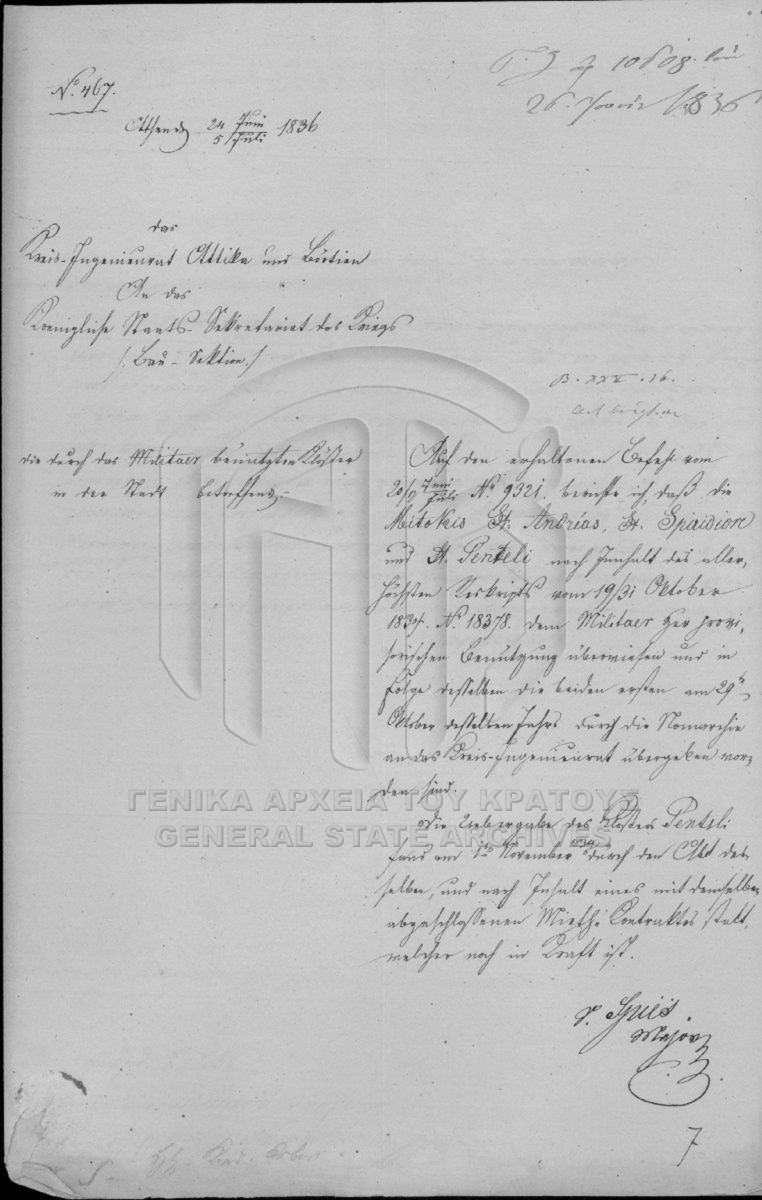 No. 467.
26. 1836
Athen den 24 Juni / 5 Juli 1836
das
Kreis-Ingenieurat Attika und Böotien
An das
Koenigliche Staats-Sekretariat des Kriegs
/: Bau-Sektion :/
B. XXV. 16.
die durch das Militaer benützten Klöster
in der Stadt betreffend.
Auf den erhaltenen Befehl vom
20 Juni / Juli No. 9321. berichte ich, daß die
Mitokis St. Andréas, St. Spiridion
und St. Penteli nach Innhalt des aller-
höchsten Reskripts vom 19/31 Oktober
1834. No. 18378. dem Militaer zur provi-
sorischen Benützung überwiesen und in
Folge desselben die beiden ersten am 29n
Oktober desselben Jahrs durch die Nomarchie
an das Kreis-Ingenieurat übergeben wor-
den sind.
Die Uebergabe des Klosters Penteli
fand am 1tn November 1834 durch den Abt des-
selben, und nach Inhalt eines mit demselben
abgeschlossenen Mieth-Contraktes statt,
welcher noch in Kraft ist.
Major
7
ΓΕΝΙΚΑ ΑΡΧΕΙΑ ΤΟΥ ΚΡΑΤΟΥΣ
GENERAL STATE ARCHIVES